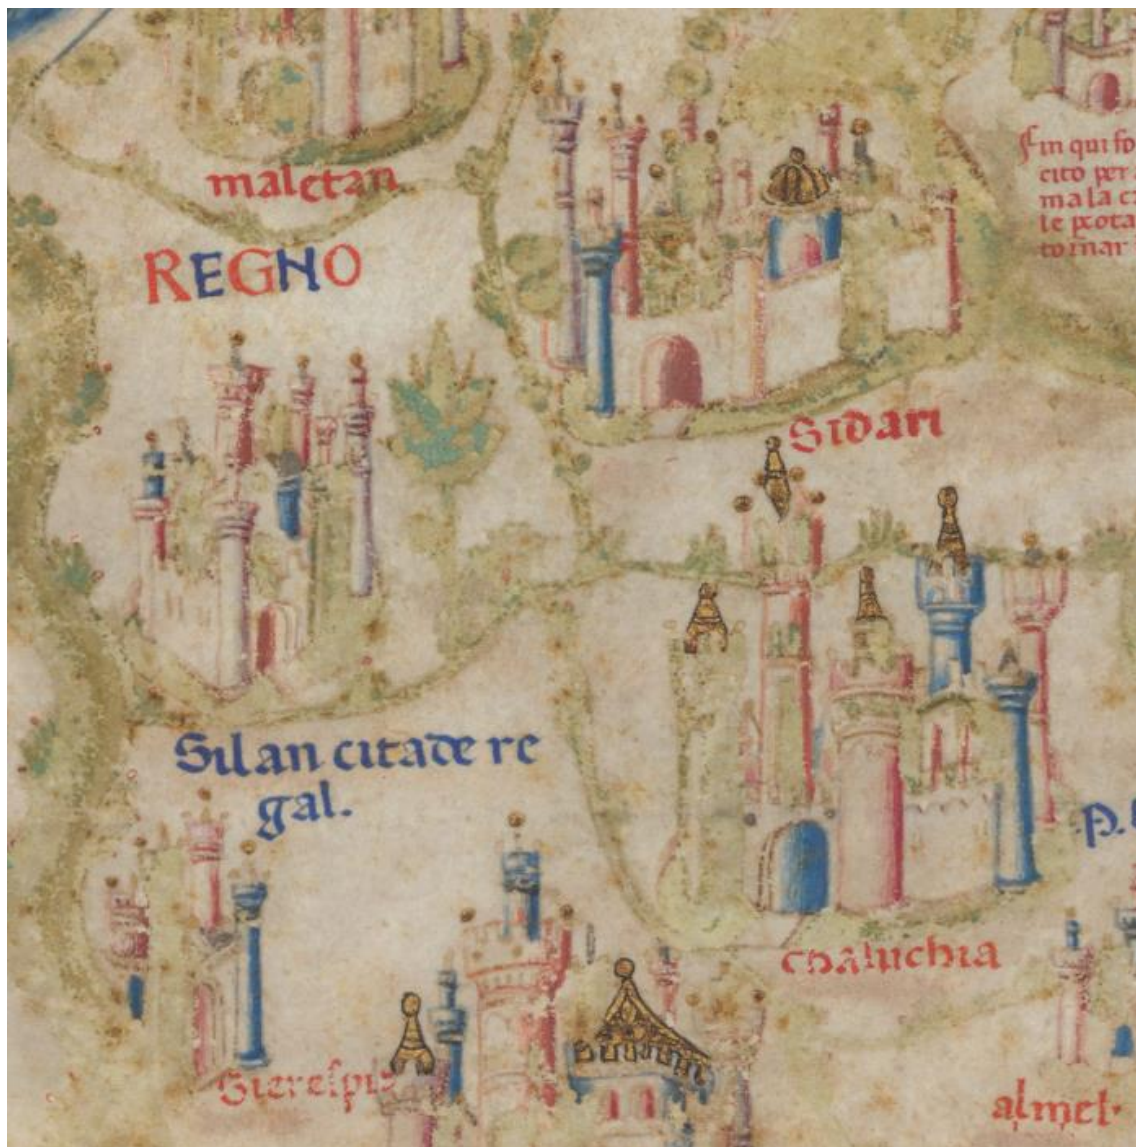 maletan
REGNO
Sin qui fo
cito per
ma la
le
tornar
Sidari
Silan citade re
gal.
P.
chaluchia
Sierespi
almet